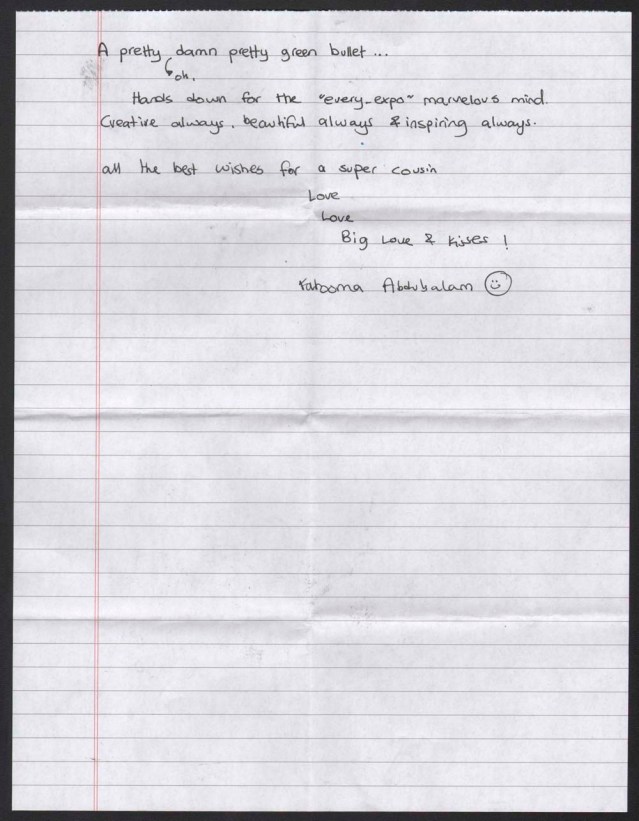 A pretty damn pretty green bullet ...
oh.
Hands down for the "every-expo" marvelous mind.
Creative always, beautiful always & inspiring always.
all the best wishes for a super cousin
Love
Love
Big Love & Kisses !
Fatooma Abdulsalam